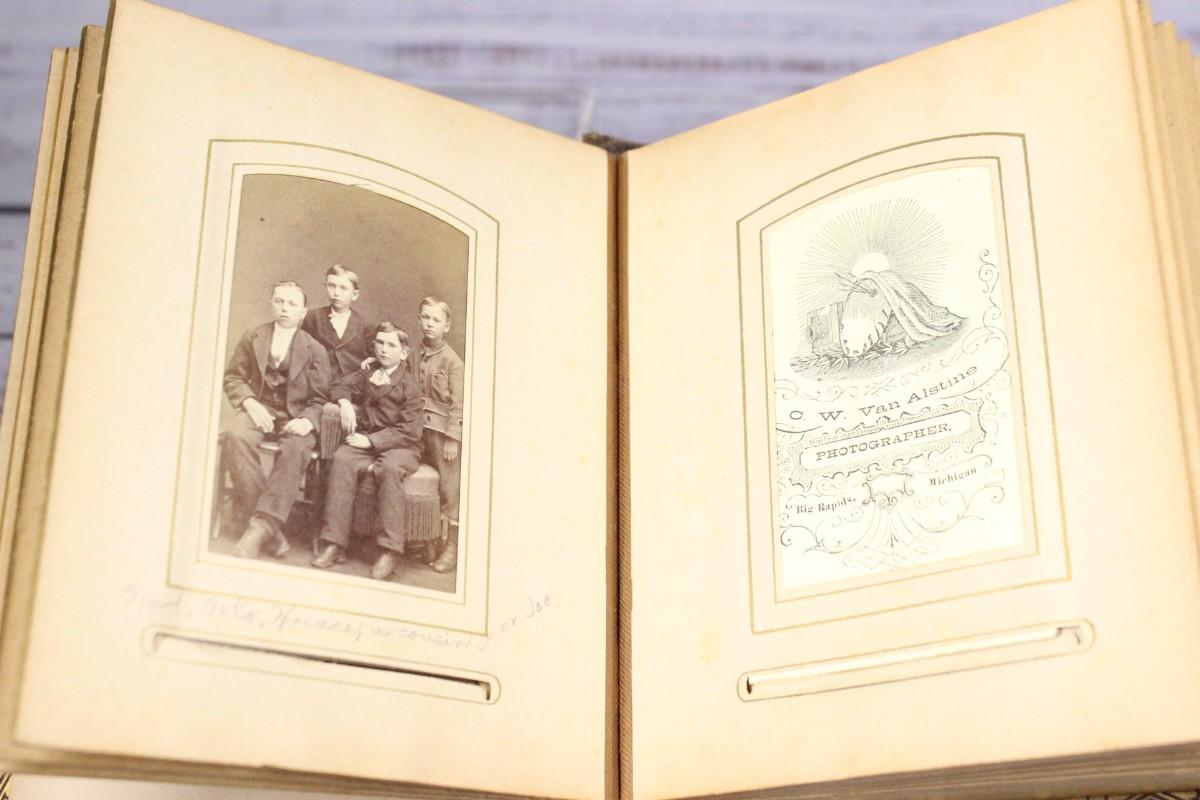 Horace, a cousin, or Joe
C. W. Van Alstine
PHOTOGRAPHER,
Big Rapids, Michigan